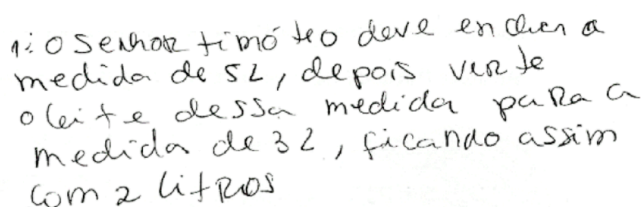 1: O Senhor timóteo deve encher a
medida de 5L, depois verte
o leite dessa medida para a
medida de 3L, ficando assim
com 2 litros